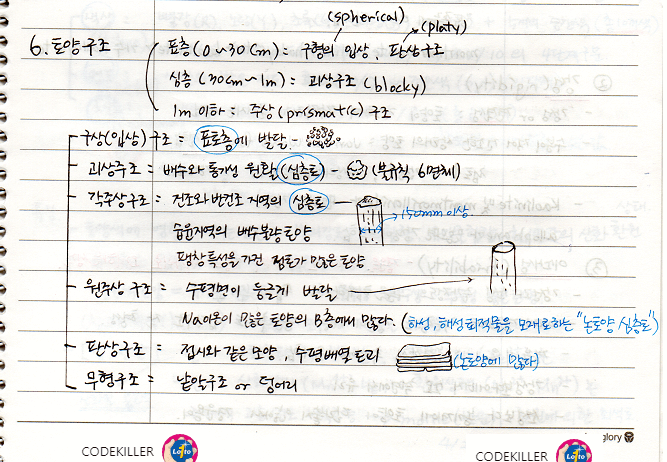 (spherical)
(platy)
6. 토양구조
표층(0~30cm): 구형의 입상, 판상구조
심층(30cm~1m): 괴상구조(blocky)
1m 이하: 주상(prismatic) 구조
구상(입상)구조: 표토층에 발달.-
괴상구조: 배수와 통기성 원활(심층토) - (불규칙 6면체)
각주상구조: 건조와 반건조 지역의 심층토
150mm이상.
습윤지역의 배수불량토양
팽창특성을 가진 점토가 많은 토양
원주상 구조: 수평면이 둥글게 발달
Na이온이 많은 토양의 B층에서 많다. (하성, 해성퇴적물을 모재로하는 "논토양 심층토")
판상구조: 접시와 같은 모양, 수평배열토괴 (논토양에 많다)
무형구조: 낱알구조 or 덩어리
glory
CODEKILLER Lotto CODEKILLER Lotto